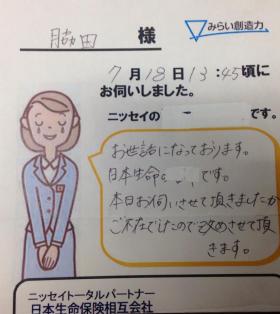 脇田 様
みらい創造力
7月18日13:45頃に
お伺いしました。
ニッセイの
お世話になっております。
日本生命の です。
本日お伺いさせて頂きましたが
ご不在でしたので改めさせて頂
きます。
ニッセイトータルパートナー
日本生命保険相互会社